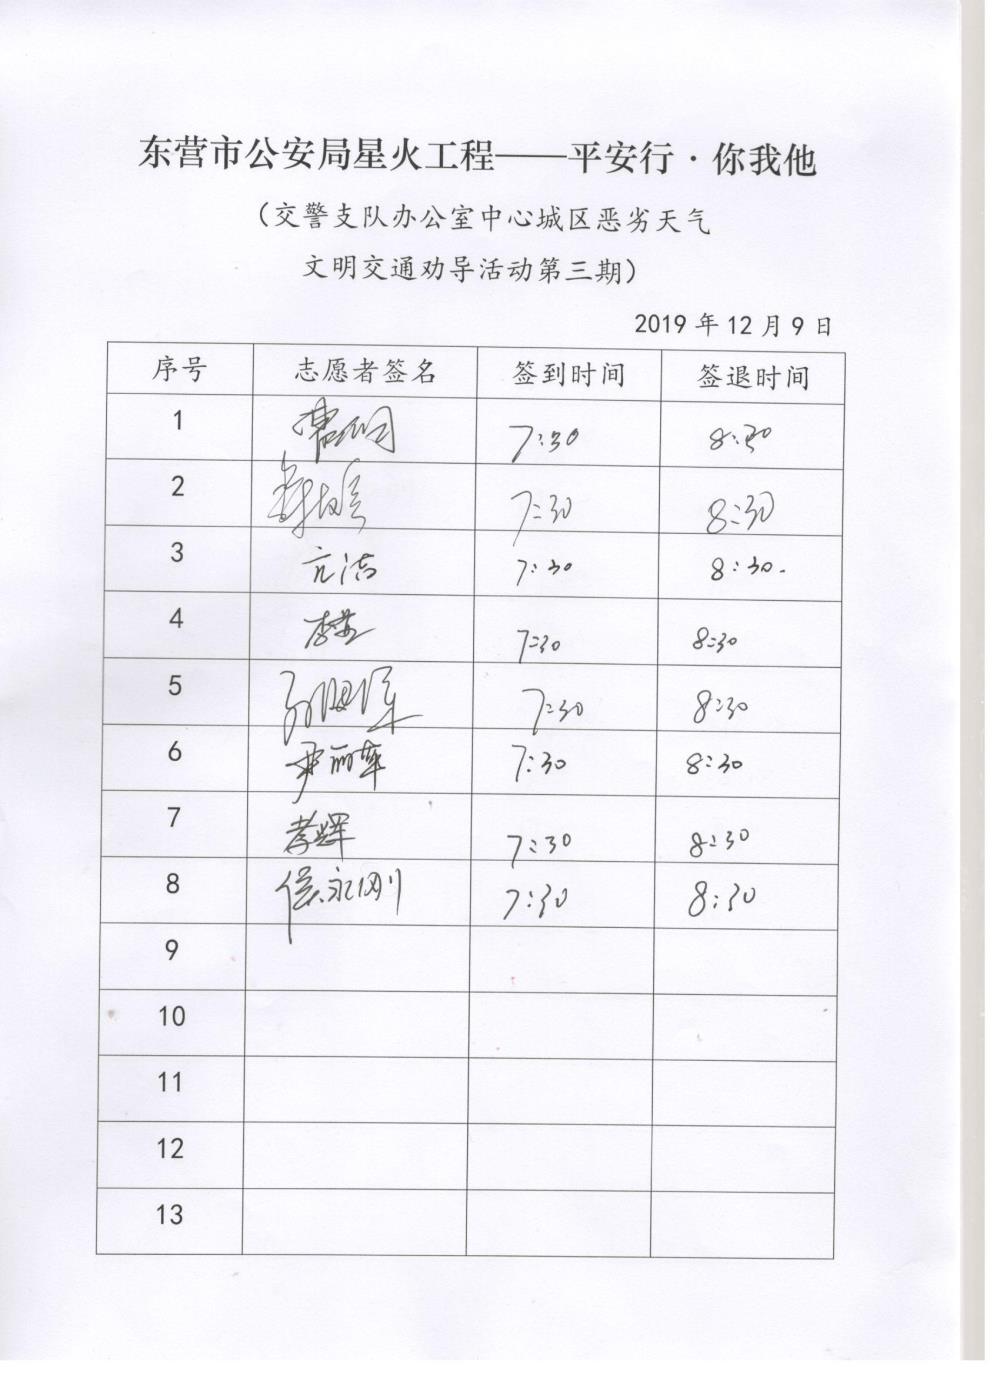 东营市公安局星火工程——平安行·你我他
（交警支队办公室中心城区恶劣天气
文明交通劝导活动第三期）
2019年12月9日
序号 志愿者签名 签到时间 签退时间
1 7:30 8:30
2 7:30 8:30
3 亓洁 7:30 8:30.
4 7:30 8:30
5 7:30 8:30
6 尹丽華 7:30 8:30
7 7:30 8:30
8 侯永刚 7:30 8:30
9
10
11
12
13